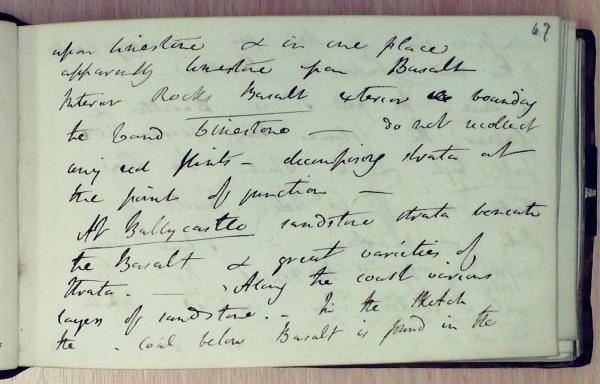 67
upon limestone & in one place
apparently limestone upon Basalt
Interior Rocks Basalt exterior bounding
the land Limestone — do not recollect
any red flints – decomposing strata at
the point of junction —
At Ballycastle sandstone strata beneath
the Basalt & great varieties of
strata. — Along the coast various
layers of sandstone. – In the sketch
the coal below Basalt is found in the